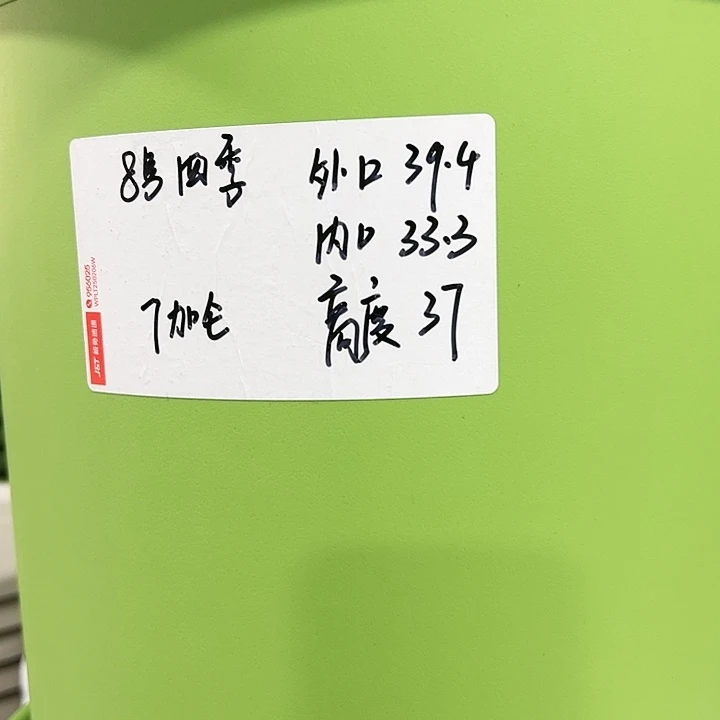 8号 四季 外口 39.4
内口 33.3
7加仑 高度 37
956025
J&T 极兔速递